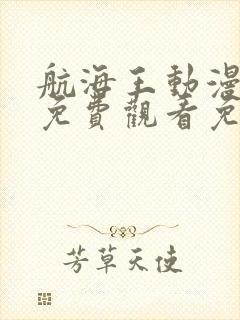 航海王動漫
免費觀看免
芳草天使